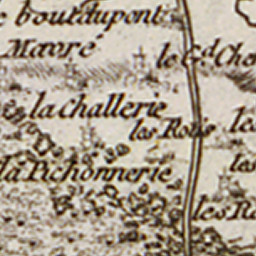 bout du pont
Mœvré
le Gd. Che
la Challerie
les Rotis
les
la Pichonnerie
les
les Ra